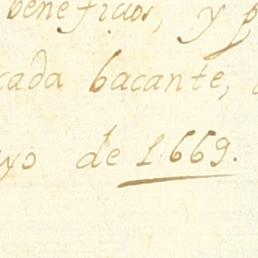 beneficios, y p
cada bacante,
yo de 1669.